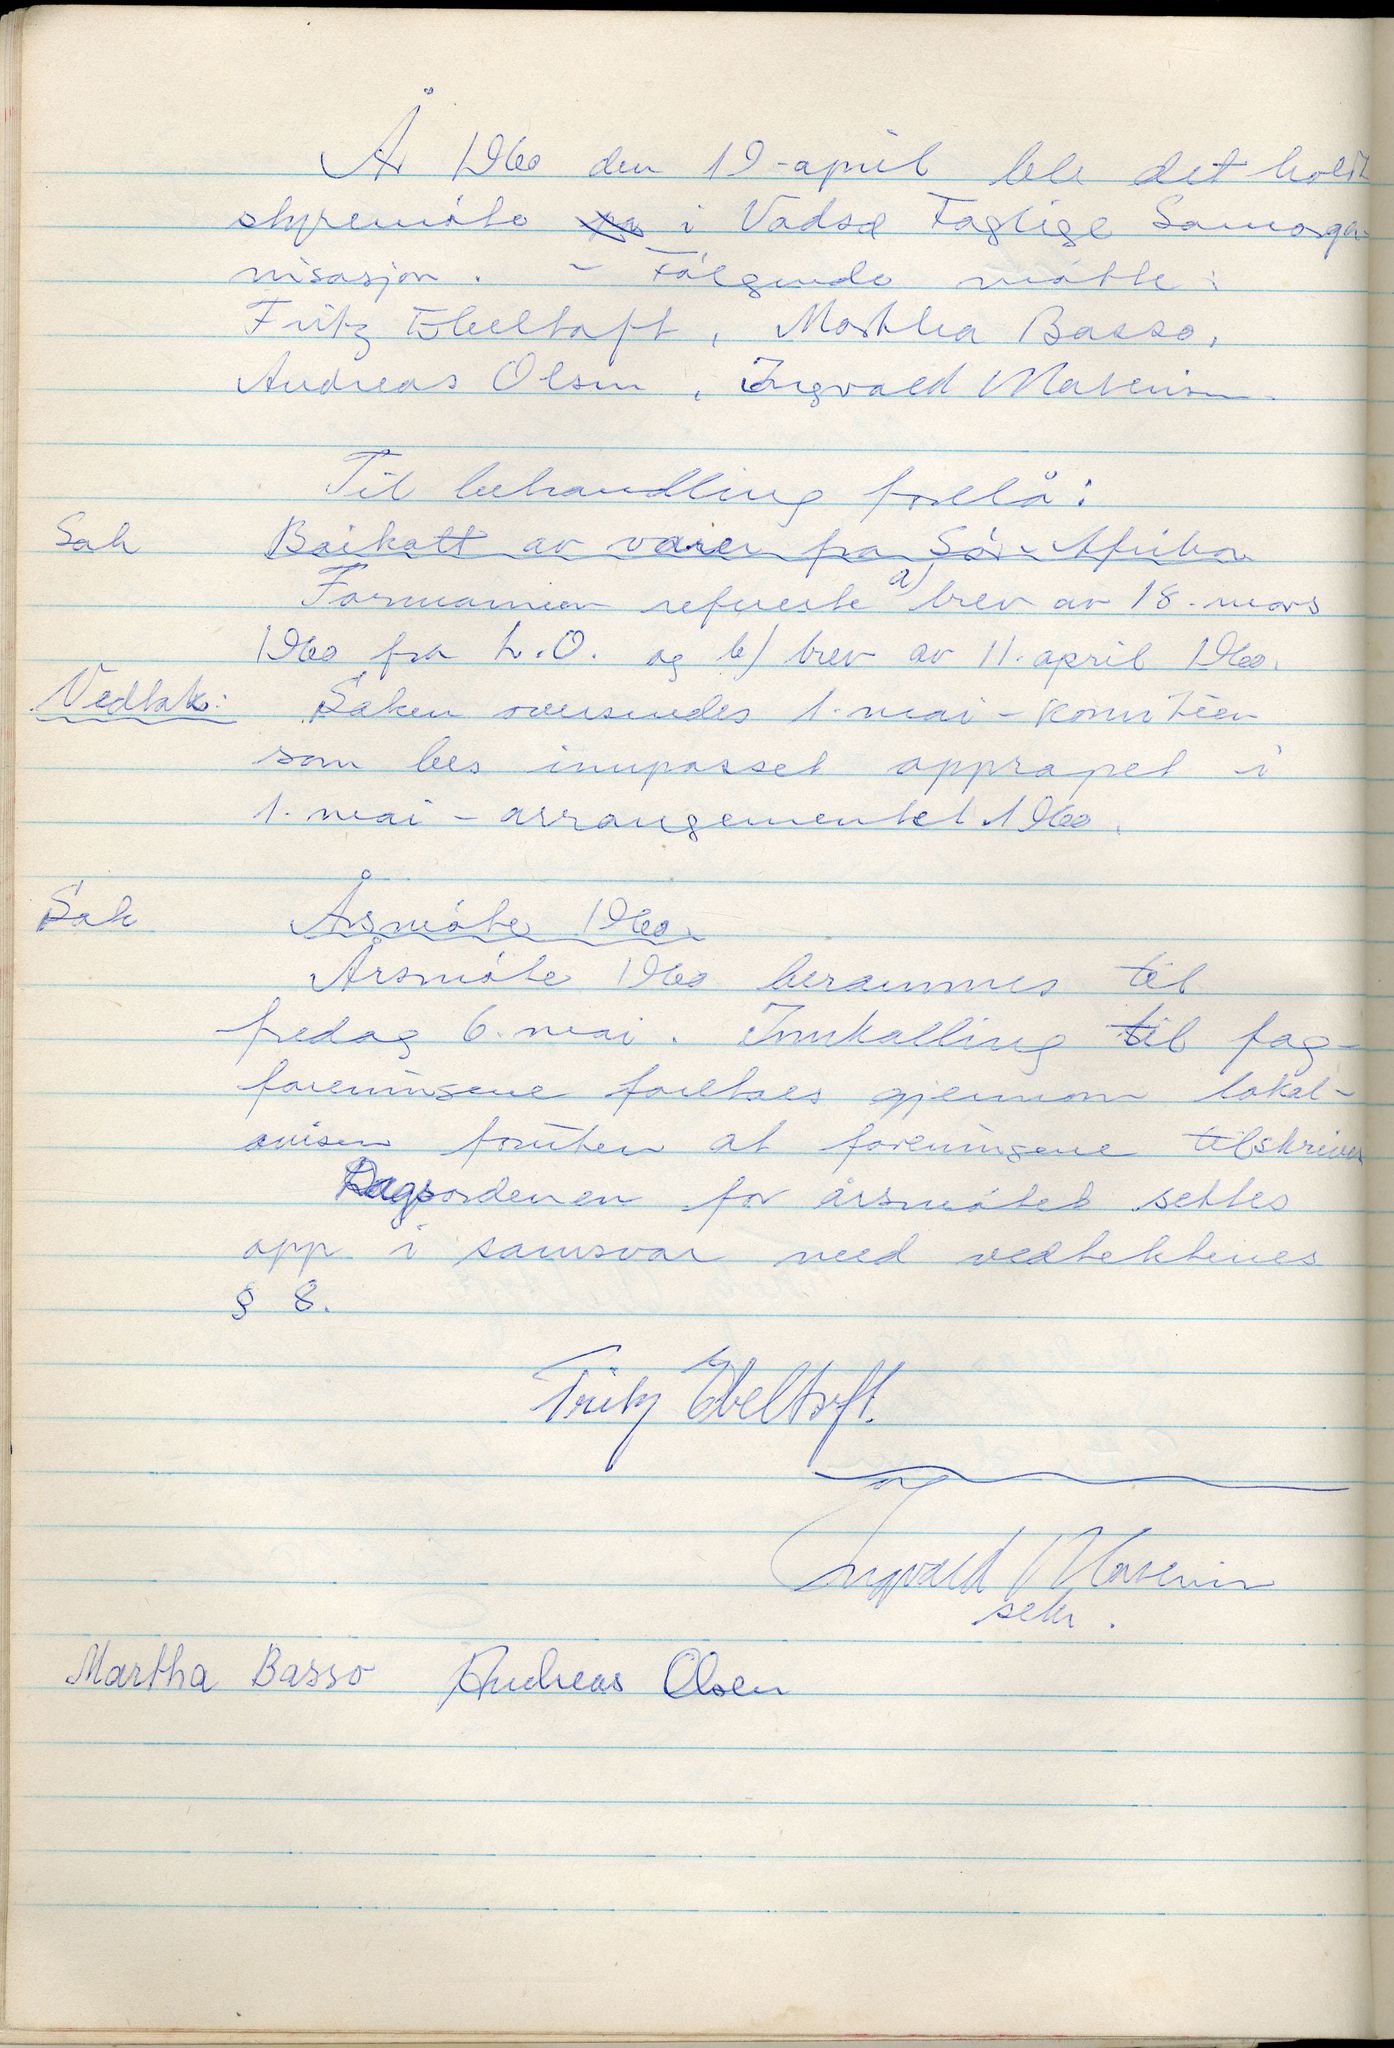 År 1960 den 19-april ble det holdt
styremöte i Vadsø Faglige Samorga-
nisasjon. - Følgende møtte:
Fritz Ebeltoft, Martha Basso,
Andreas Olsen, Ingvald Mathisen.
Til behandling forelå:
Sak Boikott av varer fra Sør-Afrika
Formannen refererte a) brev av 18. mars
1960 fra L.O. og b) brev av 11. april 1960.
Vedtak: Saken oversendes 1. mai-komitéen
som bes innpasset oppropet i
1. mai-arrangementet 1960.
Sak Årsmöte 1960.
Årsmöte 1960 berammes til
fredag 6. mai. Innkalling til fag-
foreningene foretaes gjennom lokal-
avisen foruten at foreningene tilskrives
Dagsordenen for årsmötet settes
opp i samsvar med vedtektenes
§ 8.
Fritz Ebeltoft.
Ingvald
sekr.
Martha Basso Andreas Olsen